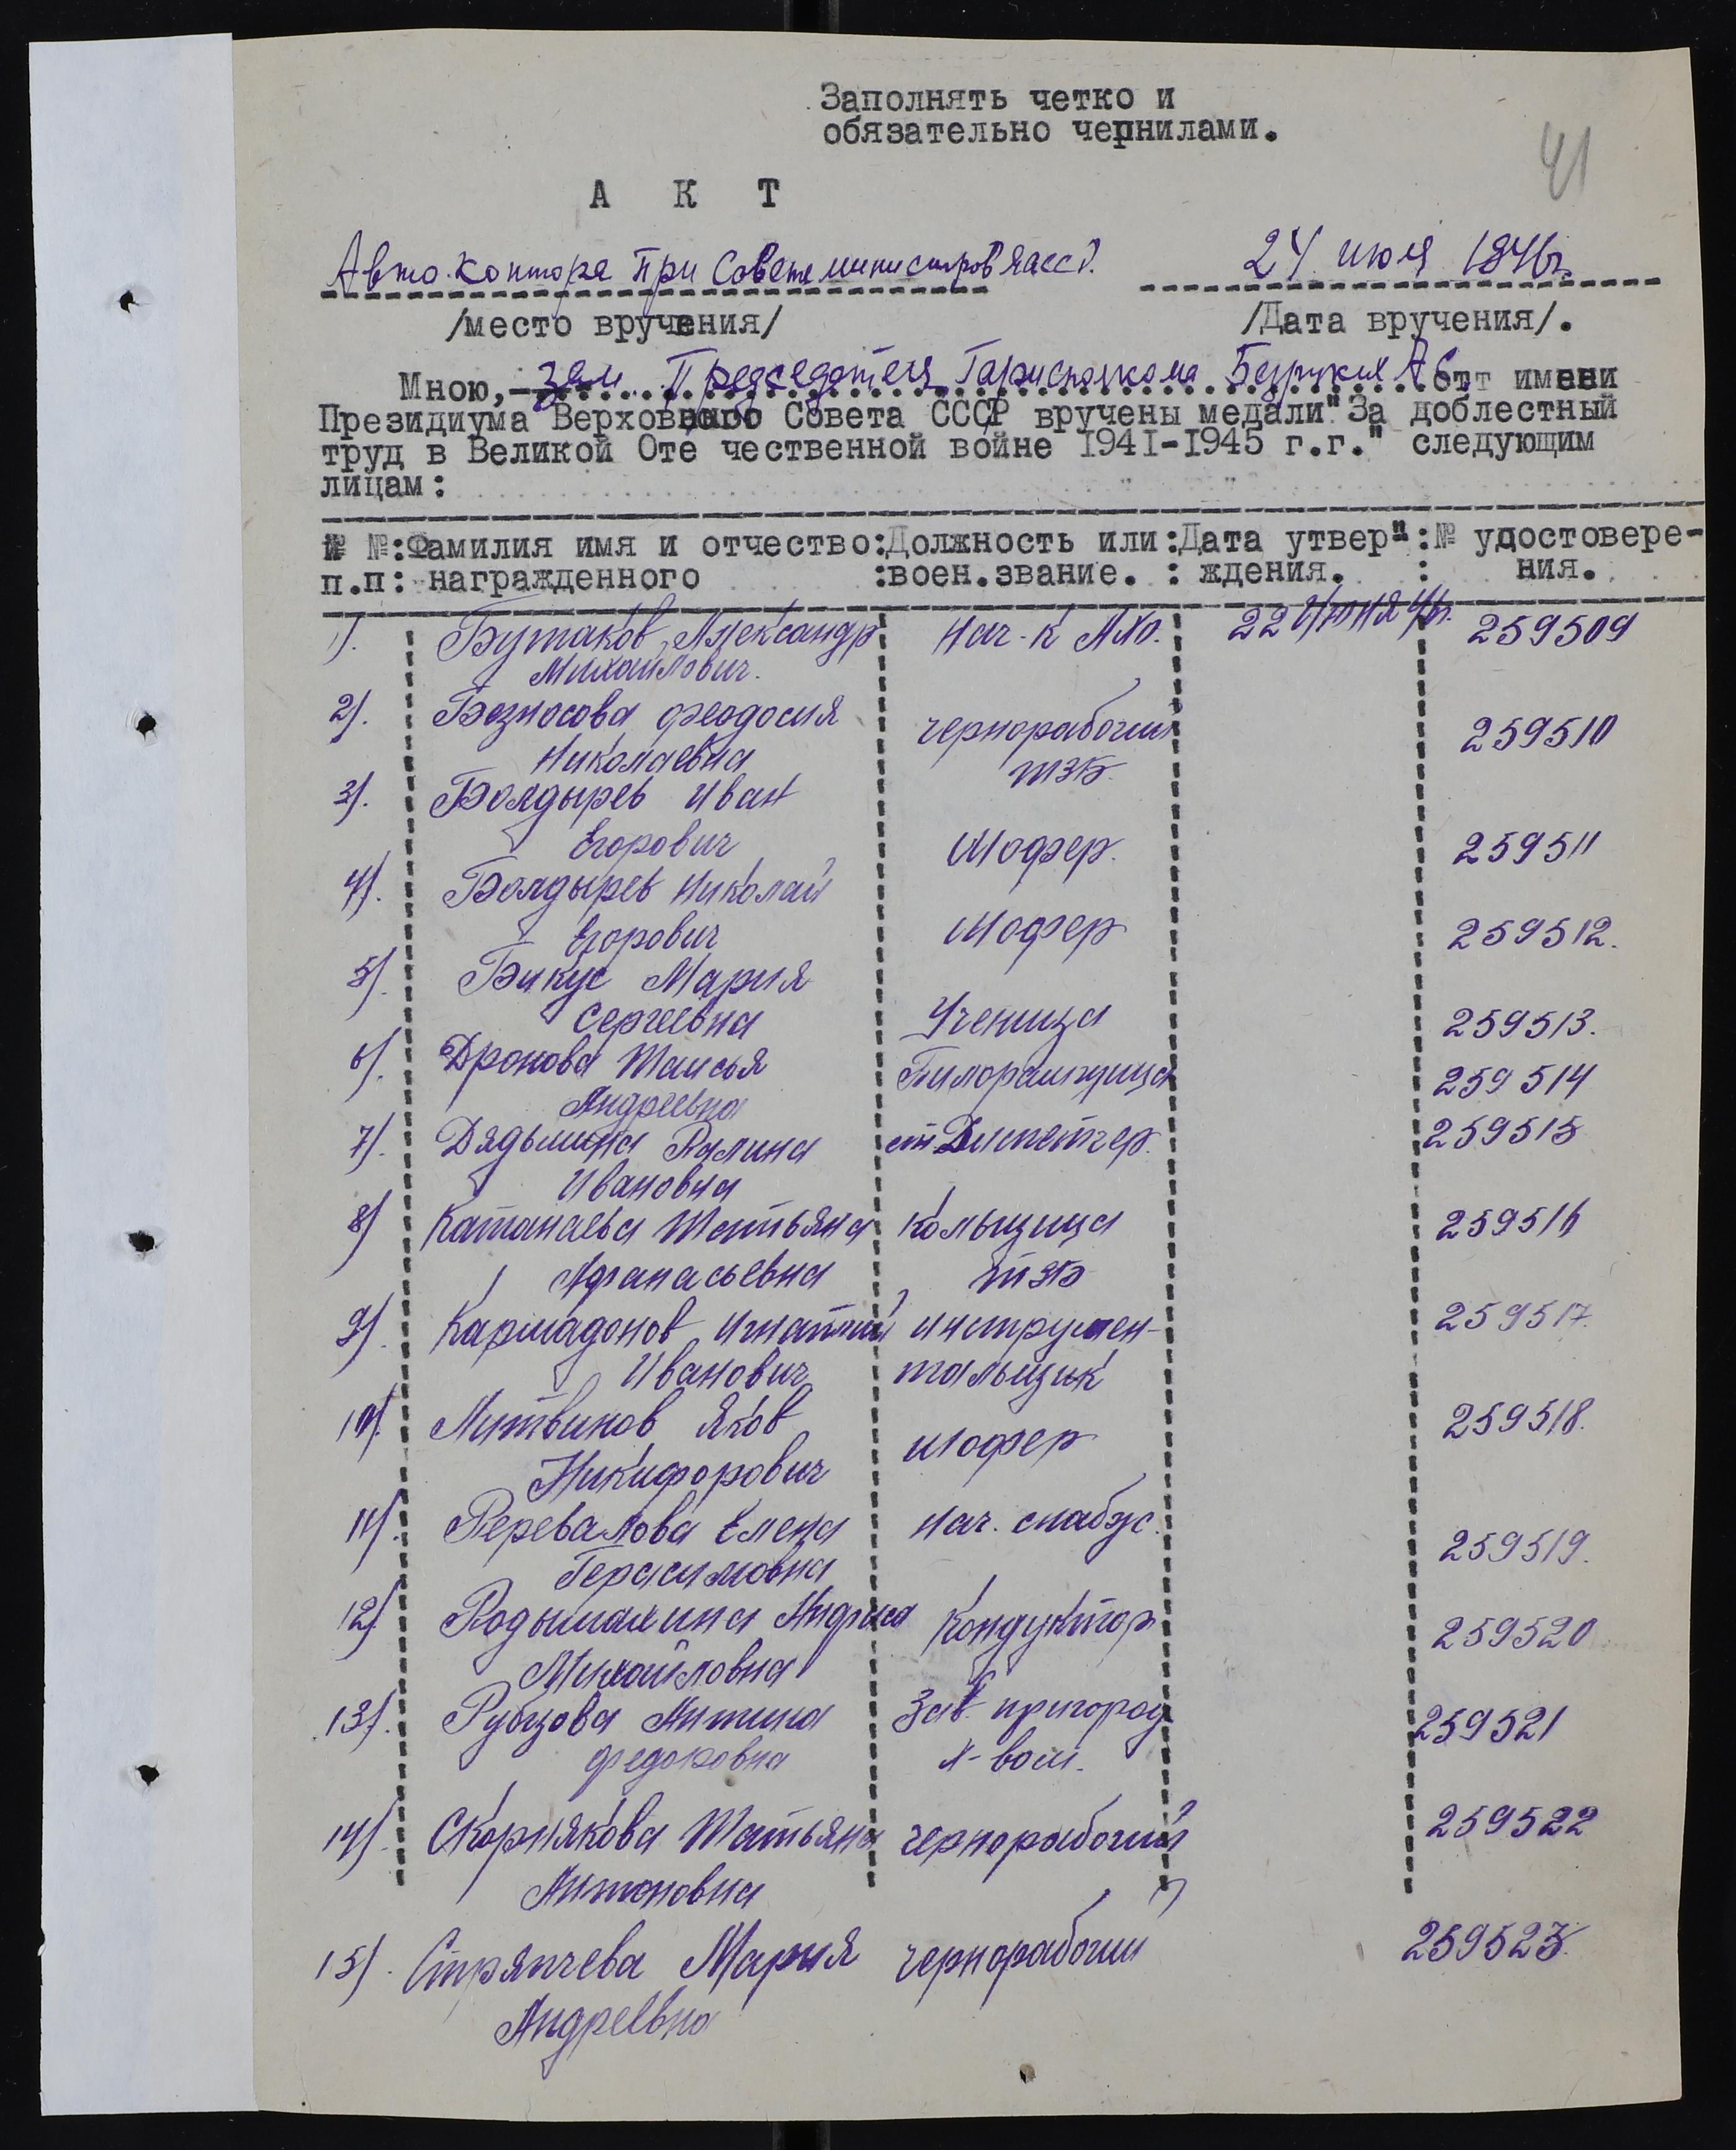 Заполнять четко и
обязательно чернилами.
41
А К Т
Авто.контора при Совете министров ЯАССР.
24 июля 1946г.
/место вручения/
/Дата вручения/.
Мною,- зам. Председателя Горисполкома Безруких А С от имени
Президиума Верховного Совета СССР вручены медали "За доблестный
труд в Великой Оте чественной войне 1941-1945 г.г." следующим
лицам:
№ №:Фамилия имя и отчество:Должность или:Дата утвер":№ удостовере-
п.п: награжденного :воен.звание. : ждения. : ния.
1). Бутаков Александр Нач-к АХО. 22 Июня 46г. 259509
Михайлович.
2). Безносова Феодосия чернорабочий 259510
Николаевна ТЭБ.
3). Болдырев Иван
Егорович Шофер. 259511
4). Болдырев Николай
Егорович Шофер 259512.
5). Бикус Мария
Сергеевна Ученица 259513.
6). Дронова Таисья Пилорамщица 259514
Андреевна
7). Дядьшина Галина ст Диспетчер. 259515
Ивановна
8) Катанаева Татьяна Кольщица 259516
Афанасьевна ТЭБ
9). Кармадонов Игнатий инструмен- 259517.
Иванович тальщик
10). Литвинов Яков шофер 259518.
Никифорович
11). Перевалова Елена Нач. снабж. 259519.
Герасимовна
12) Кондуктор 259520
Михайловна
13). Рубцова Зав. пригород 259521
Федоровна х-вом.
14). Скорнякова Татьяна чернорабочий 259522
Антоновна
15). Стряпчева Мария чернорабочий 259523.
Андреевна